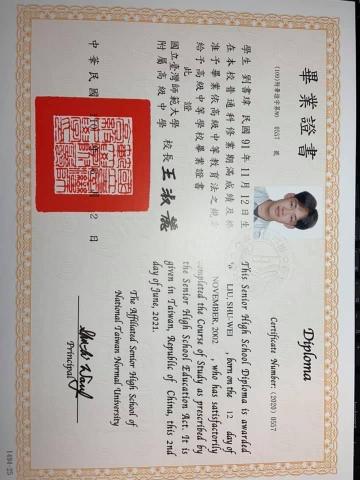 畢業證書
(109)附普證字第No. 0557 號
學生 劉書瑋 民國 91 年 11 月 12 日 生
在本校普通科修業期滿成績及格
准予畢業依高級中等教育法之規定
給予高級中等學校畢業證書
此證
國立臺灣師範大學
附屬高級中學 校長 王淑麗
中華民國
2 日
Diploma
Certificate Number: (2020) 0557
This Senior High School Diploma is awarded
to LIU, SHU-WEI , born on the 12 day of
NOVEMBER, 2002 , who has satisfactorily
completed the Course of Study as prescribed by
the Senior High School Education Act. It is
given in Taiwan, Republic of China, this 2nd
day of June, 2021.
The Affiliated Senior High School of
National Taiwan Normal University
Principal
1494-25